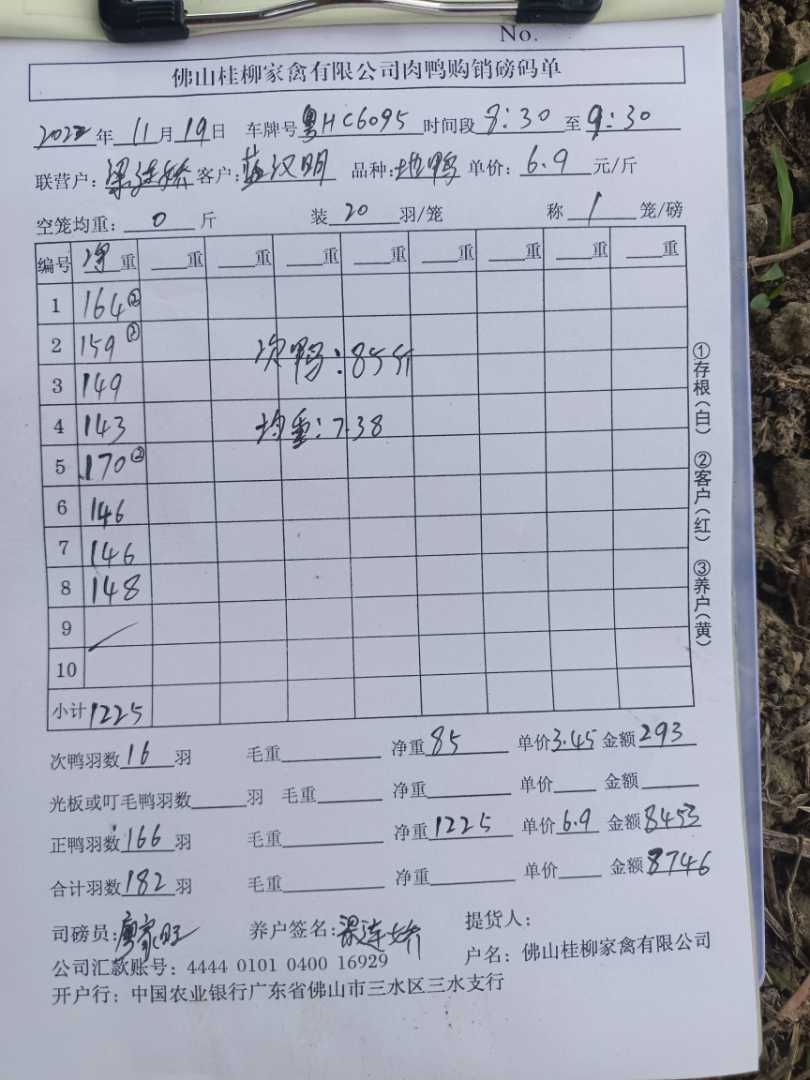 No.
佛山桂柳家禽有限公司肉鸭购销磅码单
2022年 11月19日 车牌号粤HC6095 时间段8:30至9:30
联营户:梁连娇 客户:汉明 品种: 鸭 单价:6.9元/斤
空笼均重:0斤 装20羽/笼 称1笼/磅
编号 净重 重 重 重 重 重 重 重 重
1 164②
2 159②
次鸭:85斤
3 149
4 143
均重:7.38
5 170②
6 146
7 146
8 148
9
10
小计 1225
①存根(白) ②客户(红) ③养户(黄)
次鸭羽数16羽 毛重 净重85 单价3.45 金额293
光板或叮毛鸭羽数 羽 毛重 净重 单价 金额
正鸭羽数166羽 毛重 净重1225 单价6.9 金额8453
合计羽数182羽 毛重 净重 单价 金额8746
司磅员:廖家旺 养户签名:梁连娇 提货人:
公司汇款账号:4444 0101 0400 16929 户名:佛山桂柳家禽有限公司
开户行:中国农业银行广东省佛山市三水区三水支行